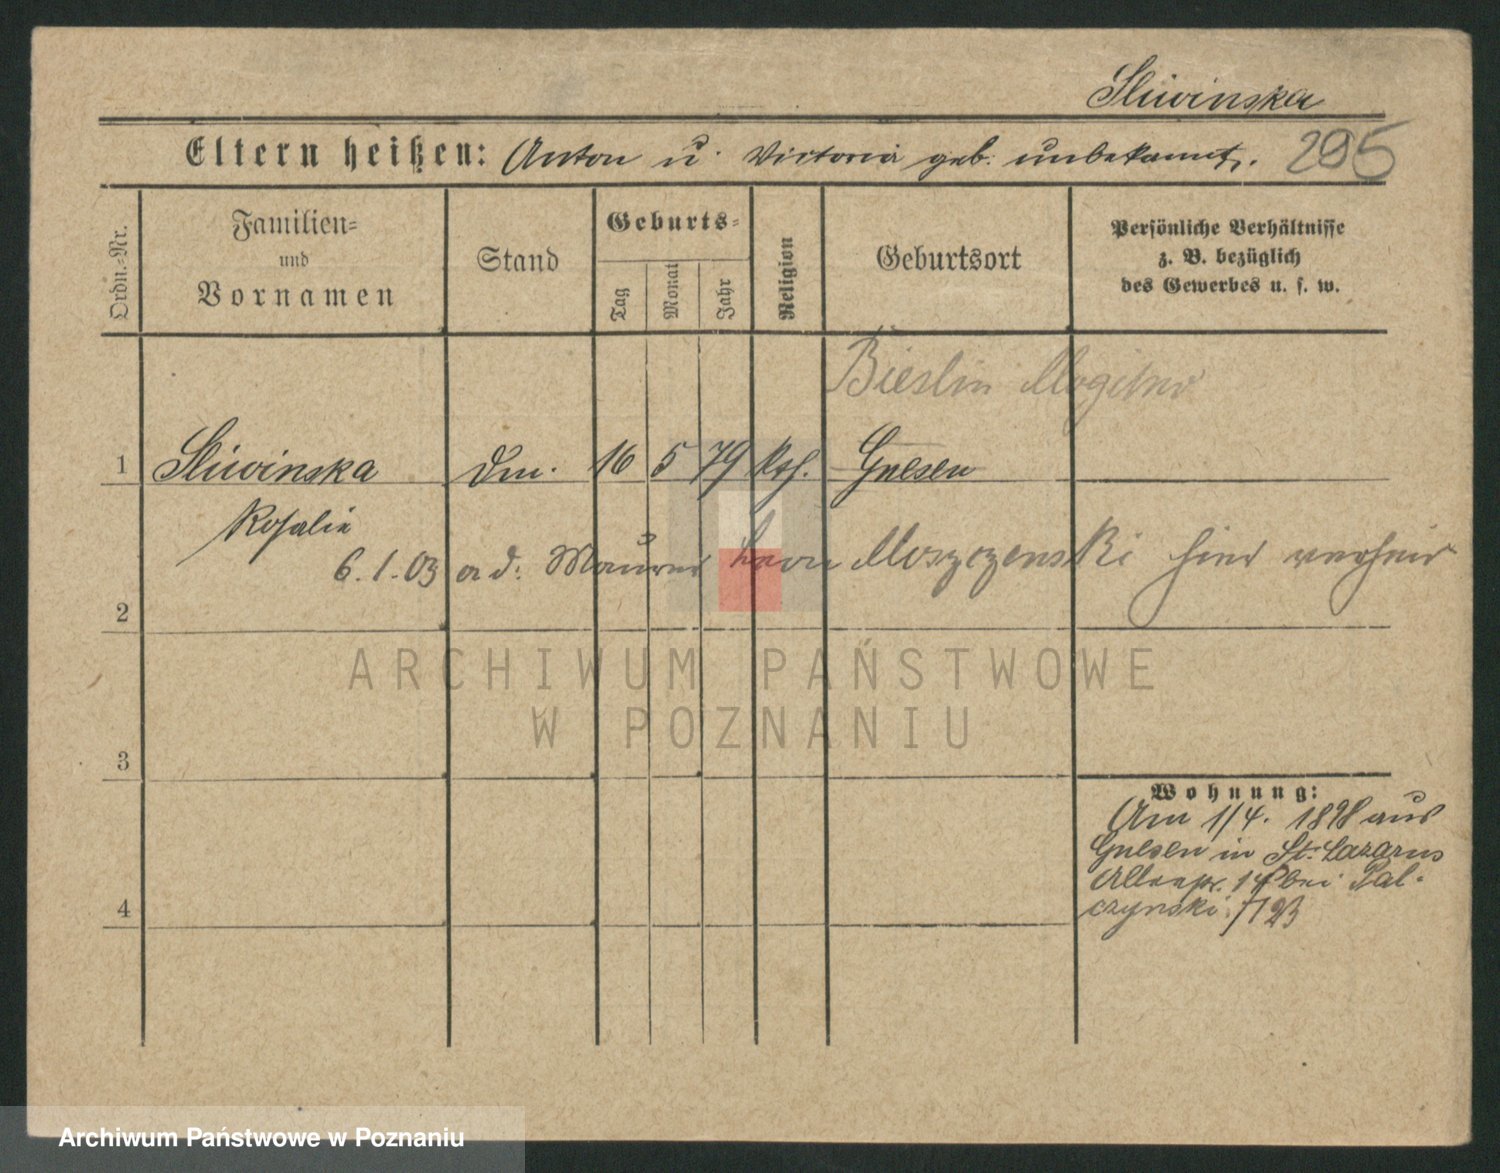 Sliwinska
Eltern heißen: Anton u. Victoria geb. unbekannt.
295
Ordn.-Nr.
Familien-
und
Vornamen
Stand
Geburts-
Tag
Monat
Jahr
Religion
Geburtsort
Persönliche Verhältnisse
z. B. bezüglich
des Gewerbes u. s. w.
Bieslin Mogilno
1 Sliwinska 16 5 79 kth. Gnesen
Rosalie
6.1.03 a d. Maurer Leon Moszczenski hier verheir
2
ARCHIWUM PAŃSTWOWE
W POZNANIU
3
Wohnung:
Am 1/4. 1898 aus
Gnesen in St. Lazarus
bei Pal-
czynski
4
Archiwum Państwowe w Poznaniu